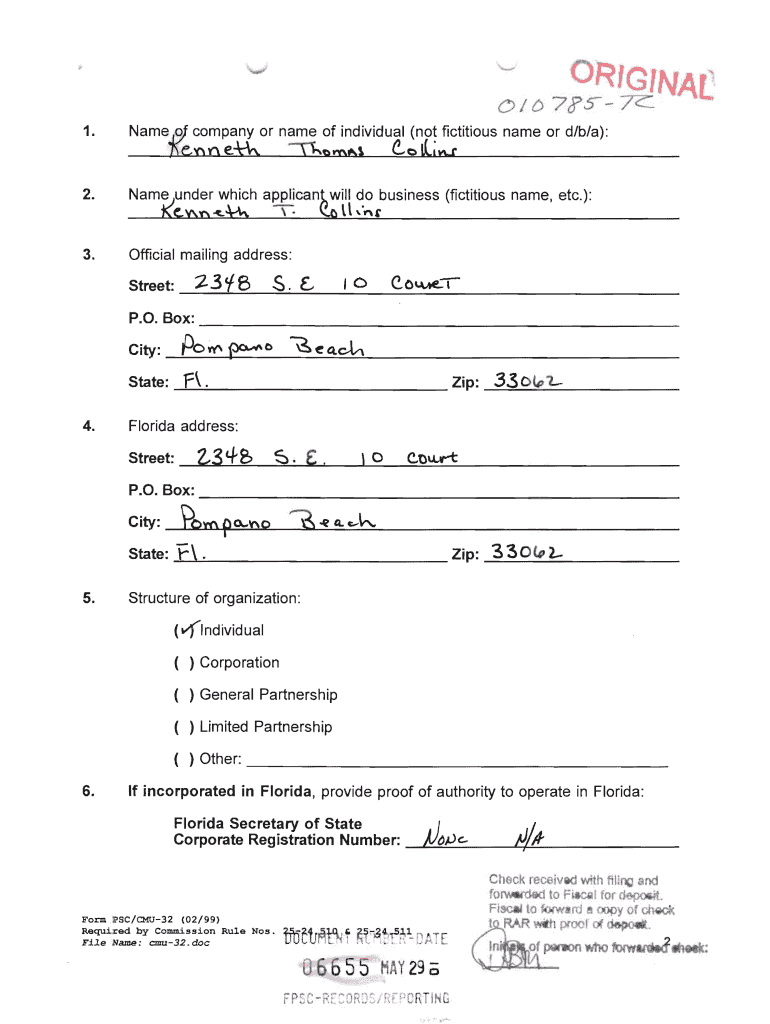 ORIGINAL
010785-TC
1. Name of company or name of individual (not fictitious name or d/b/a):
Kenneth Thomas Collins
2. Name under which applicant will do business (fictitious name, etc.):
Kenneth T. Collins
3. Official mailing address:
Street: 2348 S.E 10 Court
P.O. Box:
City: Pompano Beach
State: Fl. Zip: 33062
4. Florida address:
Street: 2348 S.E. 10 Court
P.O. Box:
City: Pompano Beach
State: Fl. Zip: 33062
5. Structure of organization:
(✓) Individual
( ) Corporation
( ) General Partnership
( ) Limited Partnership
( ) Other:
6. If incorporated in Florida, provide proof of authority to operate in Florida:
Florida Secretary of State
Corporate Registration Number: None N/A
Check received with filing and
forwarded to Fiscal for deposit.
Fiscal to forward a copy of check
to RAR with proof of deposit.
Initials of person who forwarded check:
Form PSC/CMU-32 (02/99)
Required by Commission Rule Nos. 25-24.510 & 25-24.511
File Name: cmu-32.doc
2
DOCUMENT NUMBER-DATE
06655 MAY 29
FPSC-RECORDS/REPORTING